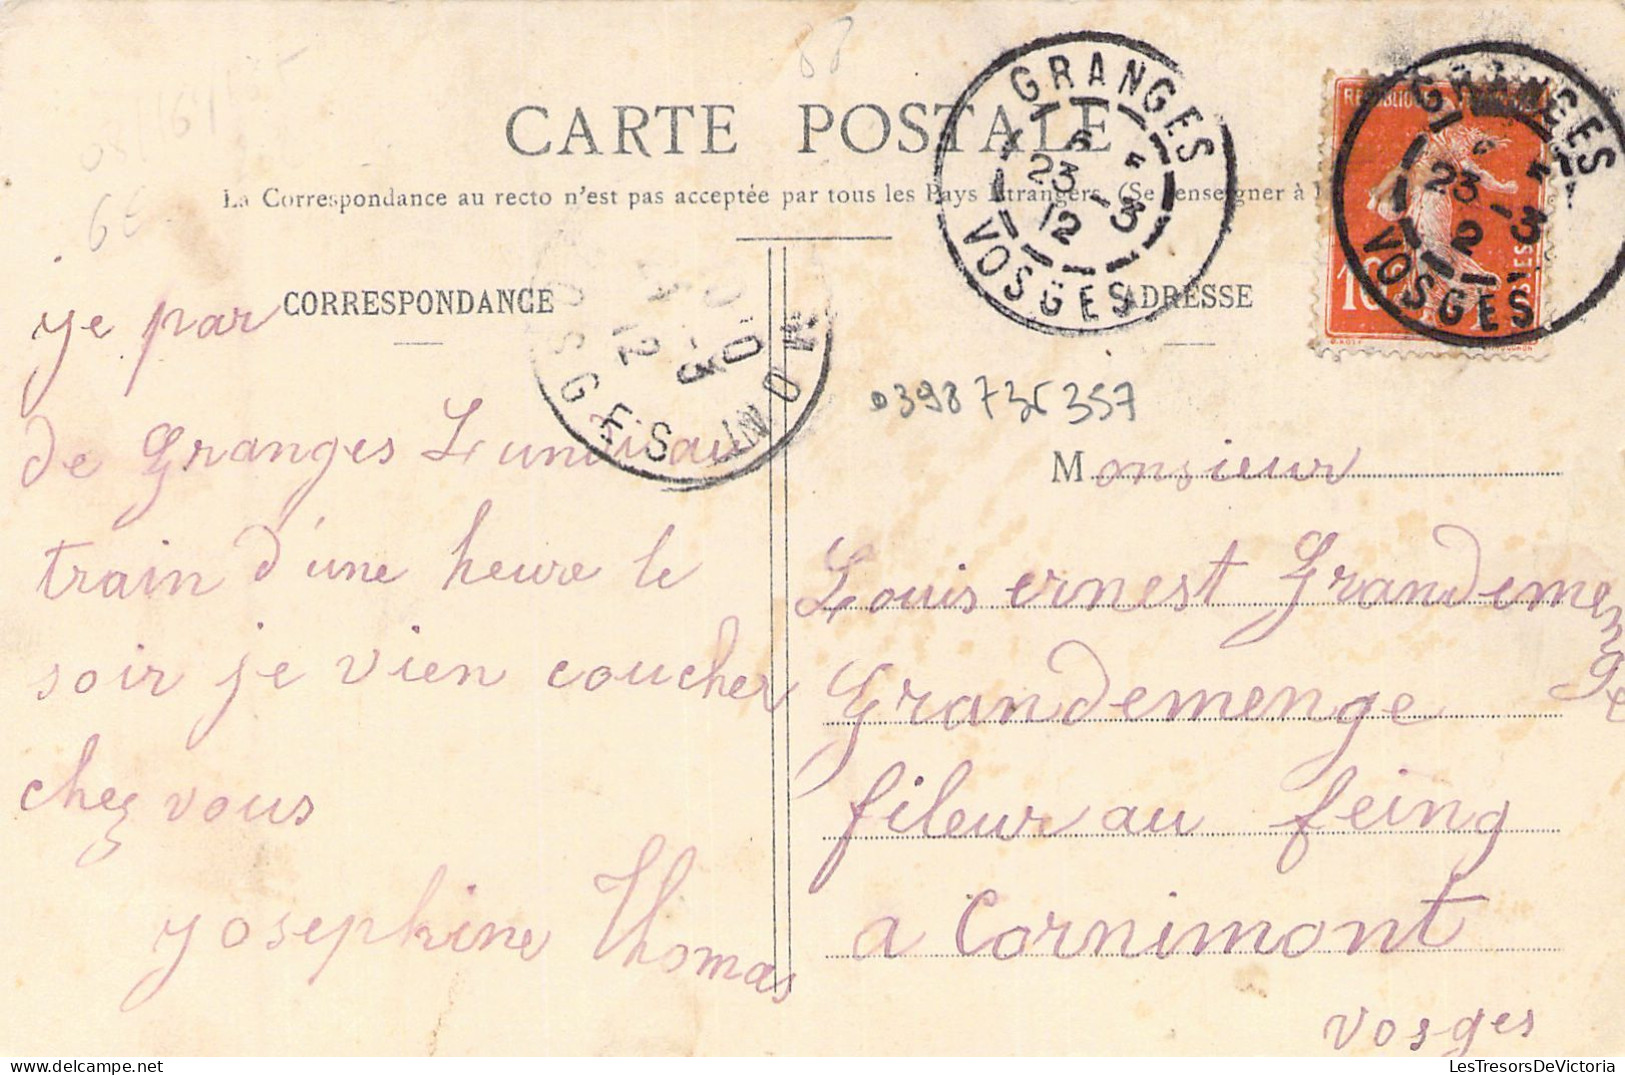 CARTE POSTALE
La Correspondance au recto n'est pas acceptée par tous les Pays Etrangers. (Se renseigner à
CORRESPONDANCE
ADRESSE
GRANGES
VOSGES
23 - 3
12
GRANGES
VOSGES
23 - 3
12
POSTES
10
VOSGES
12
0398 736 357
je par
de Granges Lundi au
train d'une heure le
soir je vien coucher
chez vous
yosephine Thomas
Monsieur
Louis ernest Grandemenge
Grandemenge
fileur au feing
a Cornimont
Vosges
LesTresorsDeVictoria